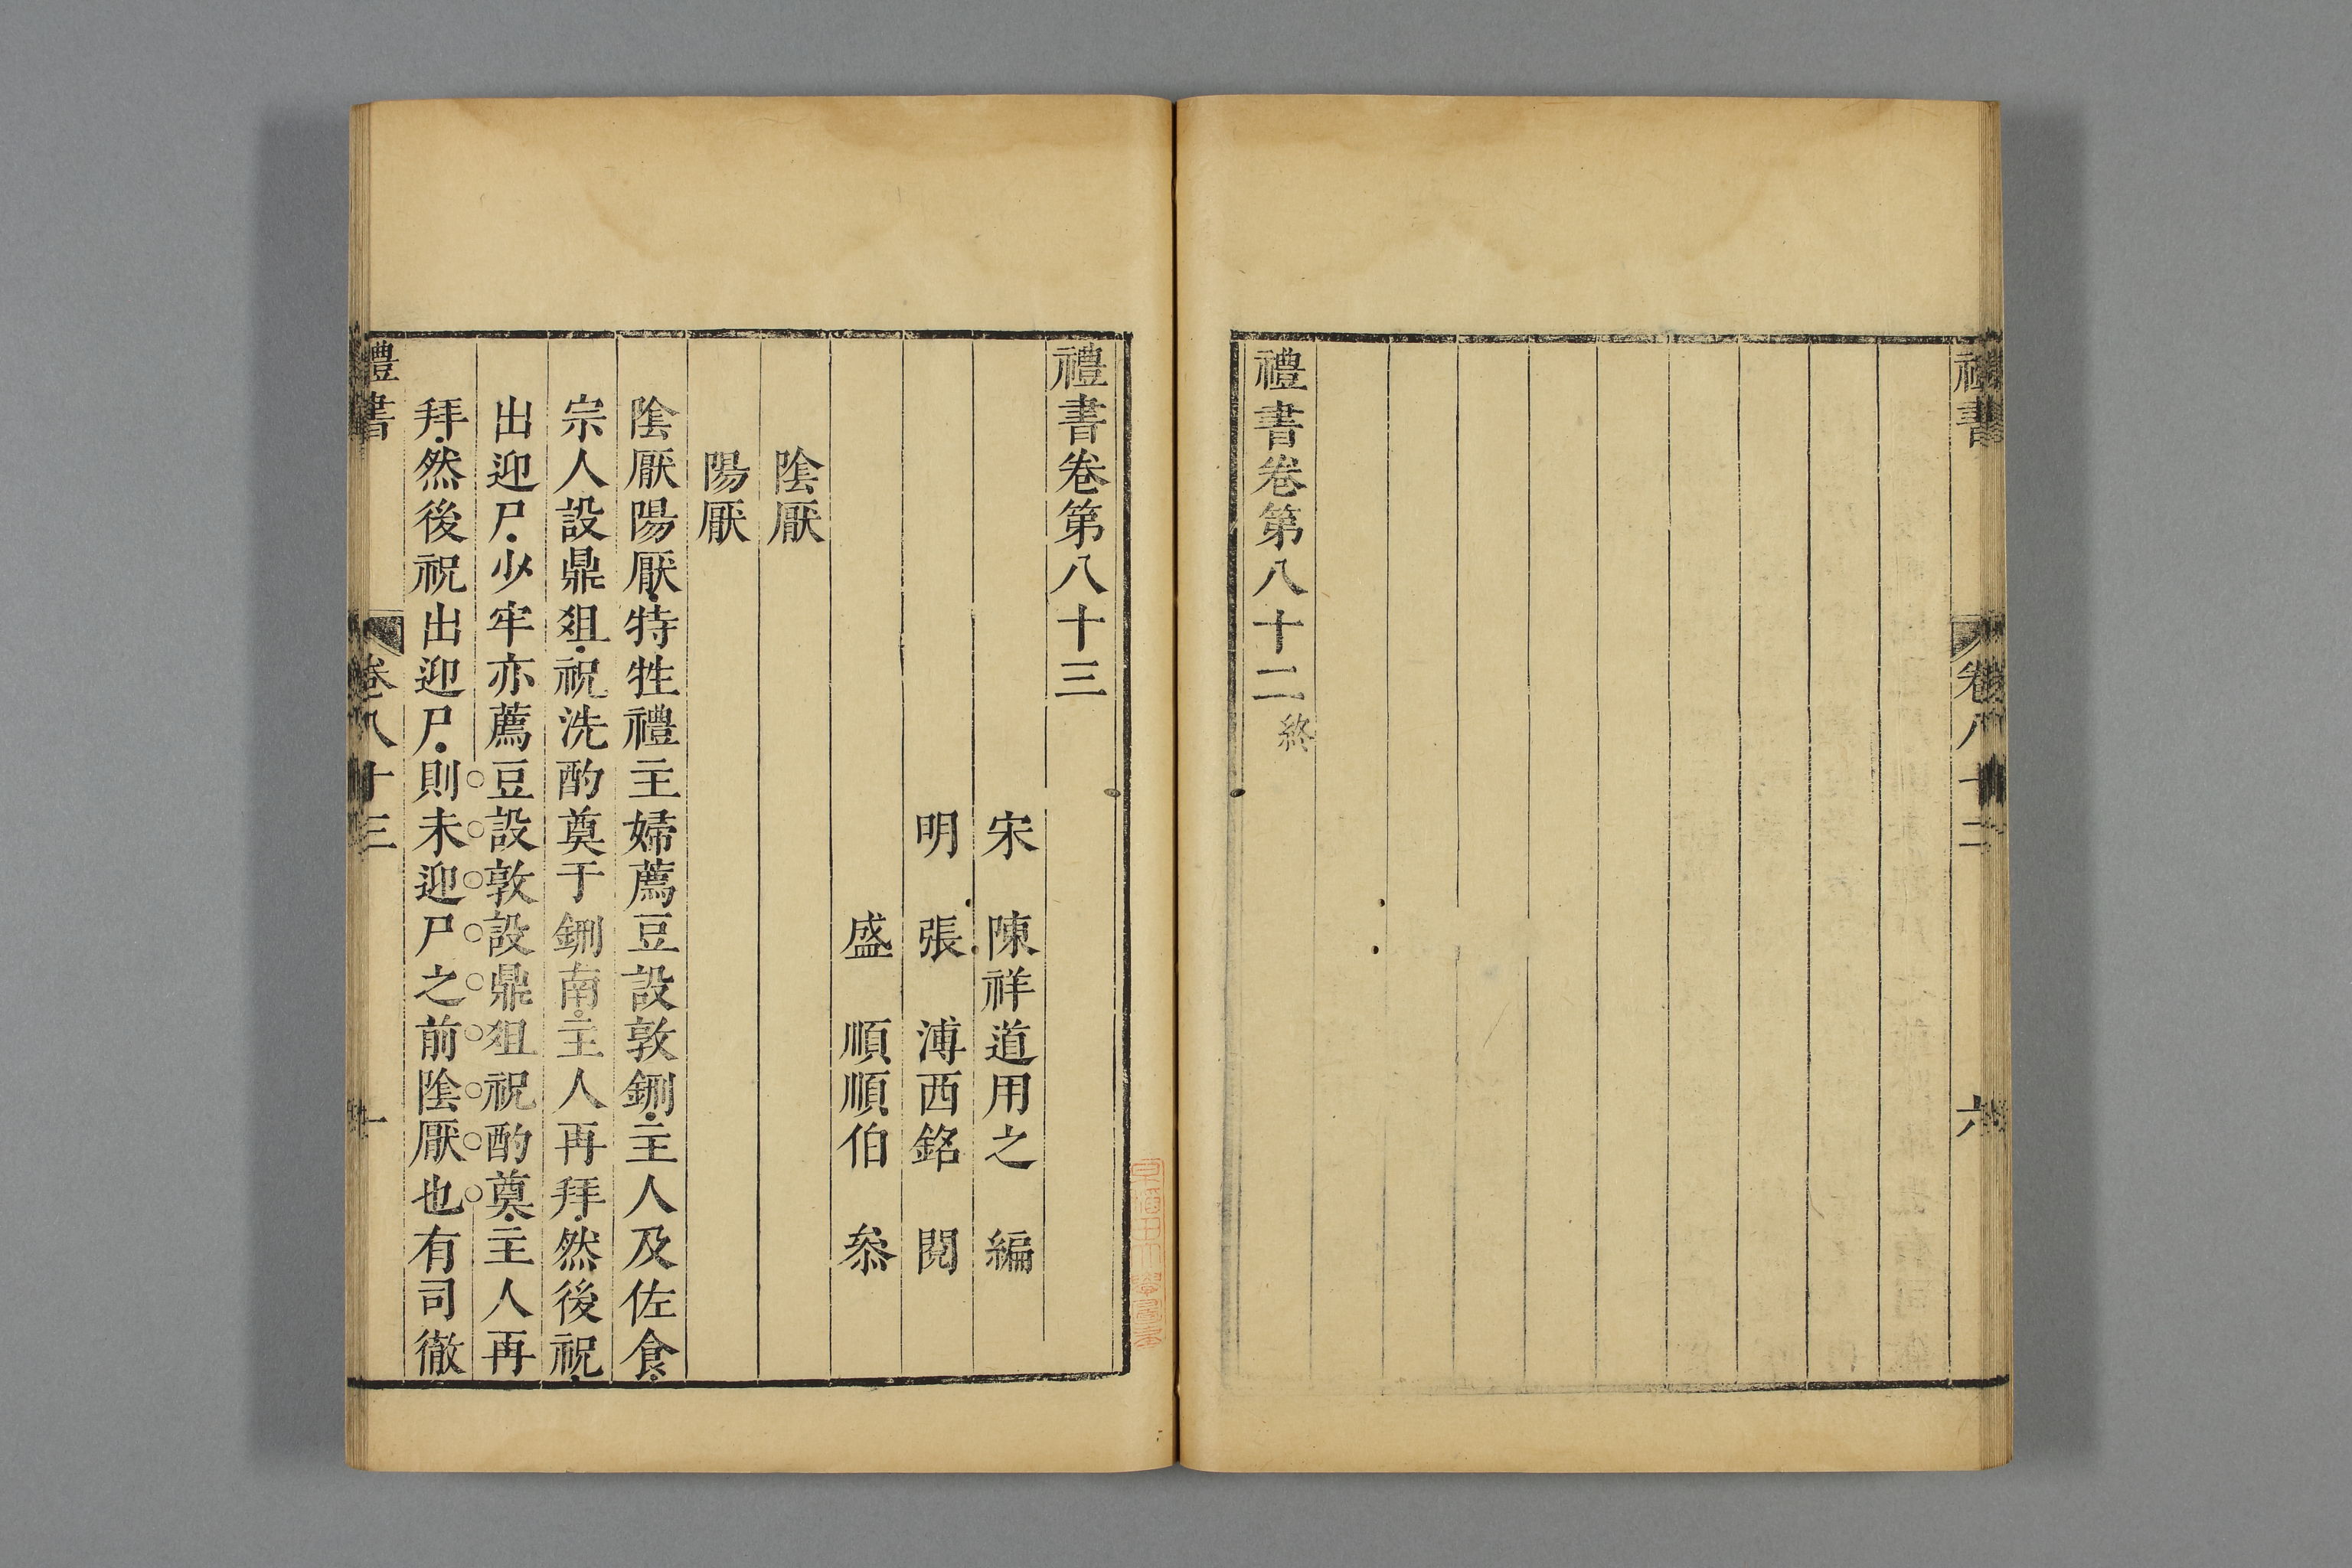 禮書
卷八十二
六
禮書卷第八十二終
禮書卷第八十三
宋 陳祥道用之 編
明 張 溥西銘 閱
盛 順順伯 叅
陰厭
陽厭
陰厭陽厭特牲禮主婦薦豆設敦鉶主人及佐食
宗人設鼎俎祝洗酌奠于鉶南主人再拜然後祝
出迎尸少牢亦薦豆設敦設鼎俎祝酌奠主人再
拜然後祝出迎尸則未迎尸之前陰厭也有司徹
禮書
卷八十三
一
早稲田大學圖書